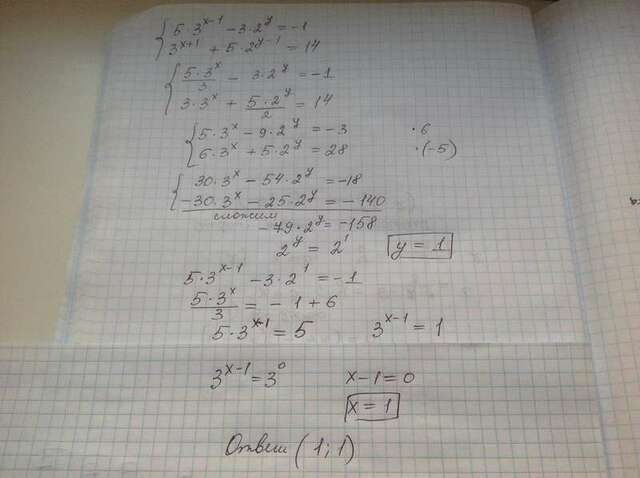 { 5·3^(x-1) - 3·2^y = -1
3^(x+1) + 5·2^(y-1) = 14
{ 5·3^x/3 - 3·2^y = -1
3·3^x + 5·2^y/2 = 14
{ 5·3^x - 9·2^y = -3 ·6
6·3^x + 5·2^y = 28 ·(-5)
{ 30·3^x - 54·2^y = -18
-30·3^x - 25·2^y = -140
сложим
-79·2^y = -158
2^y = 2^1 y = 1
5·3^(x-1) - 3·2^1 = -1
5·3^x/3 = -1 + 6
5·3^(x-1) = 5 3^(x-1) = 1
3^(x-1) = 3^0 x-1=0
x = 1
Ответ (1; 1)